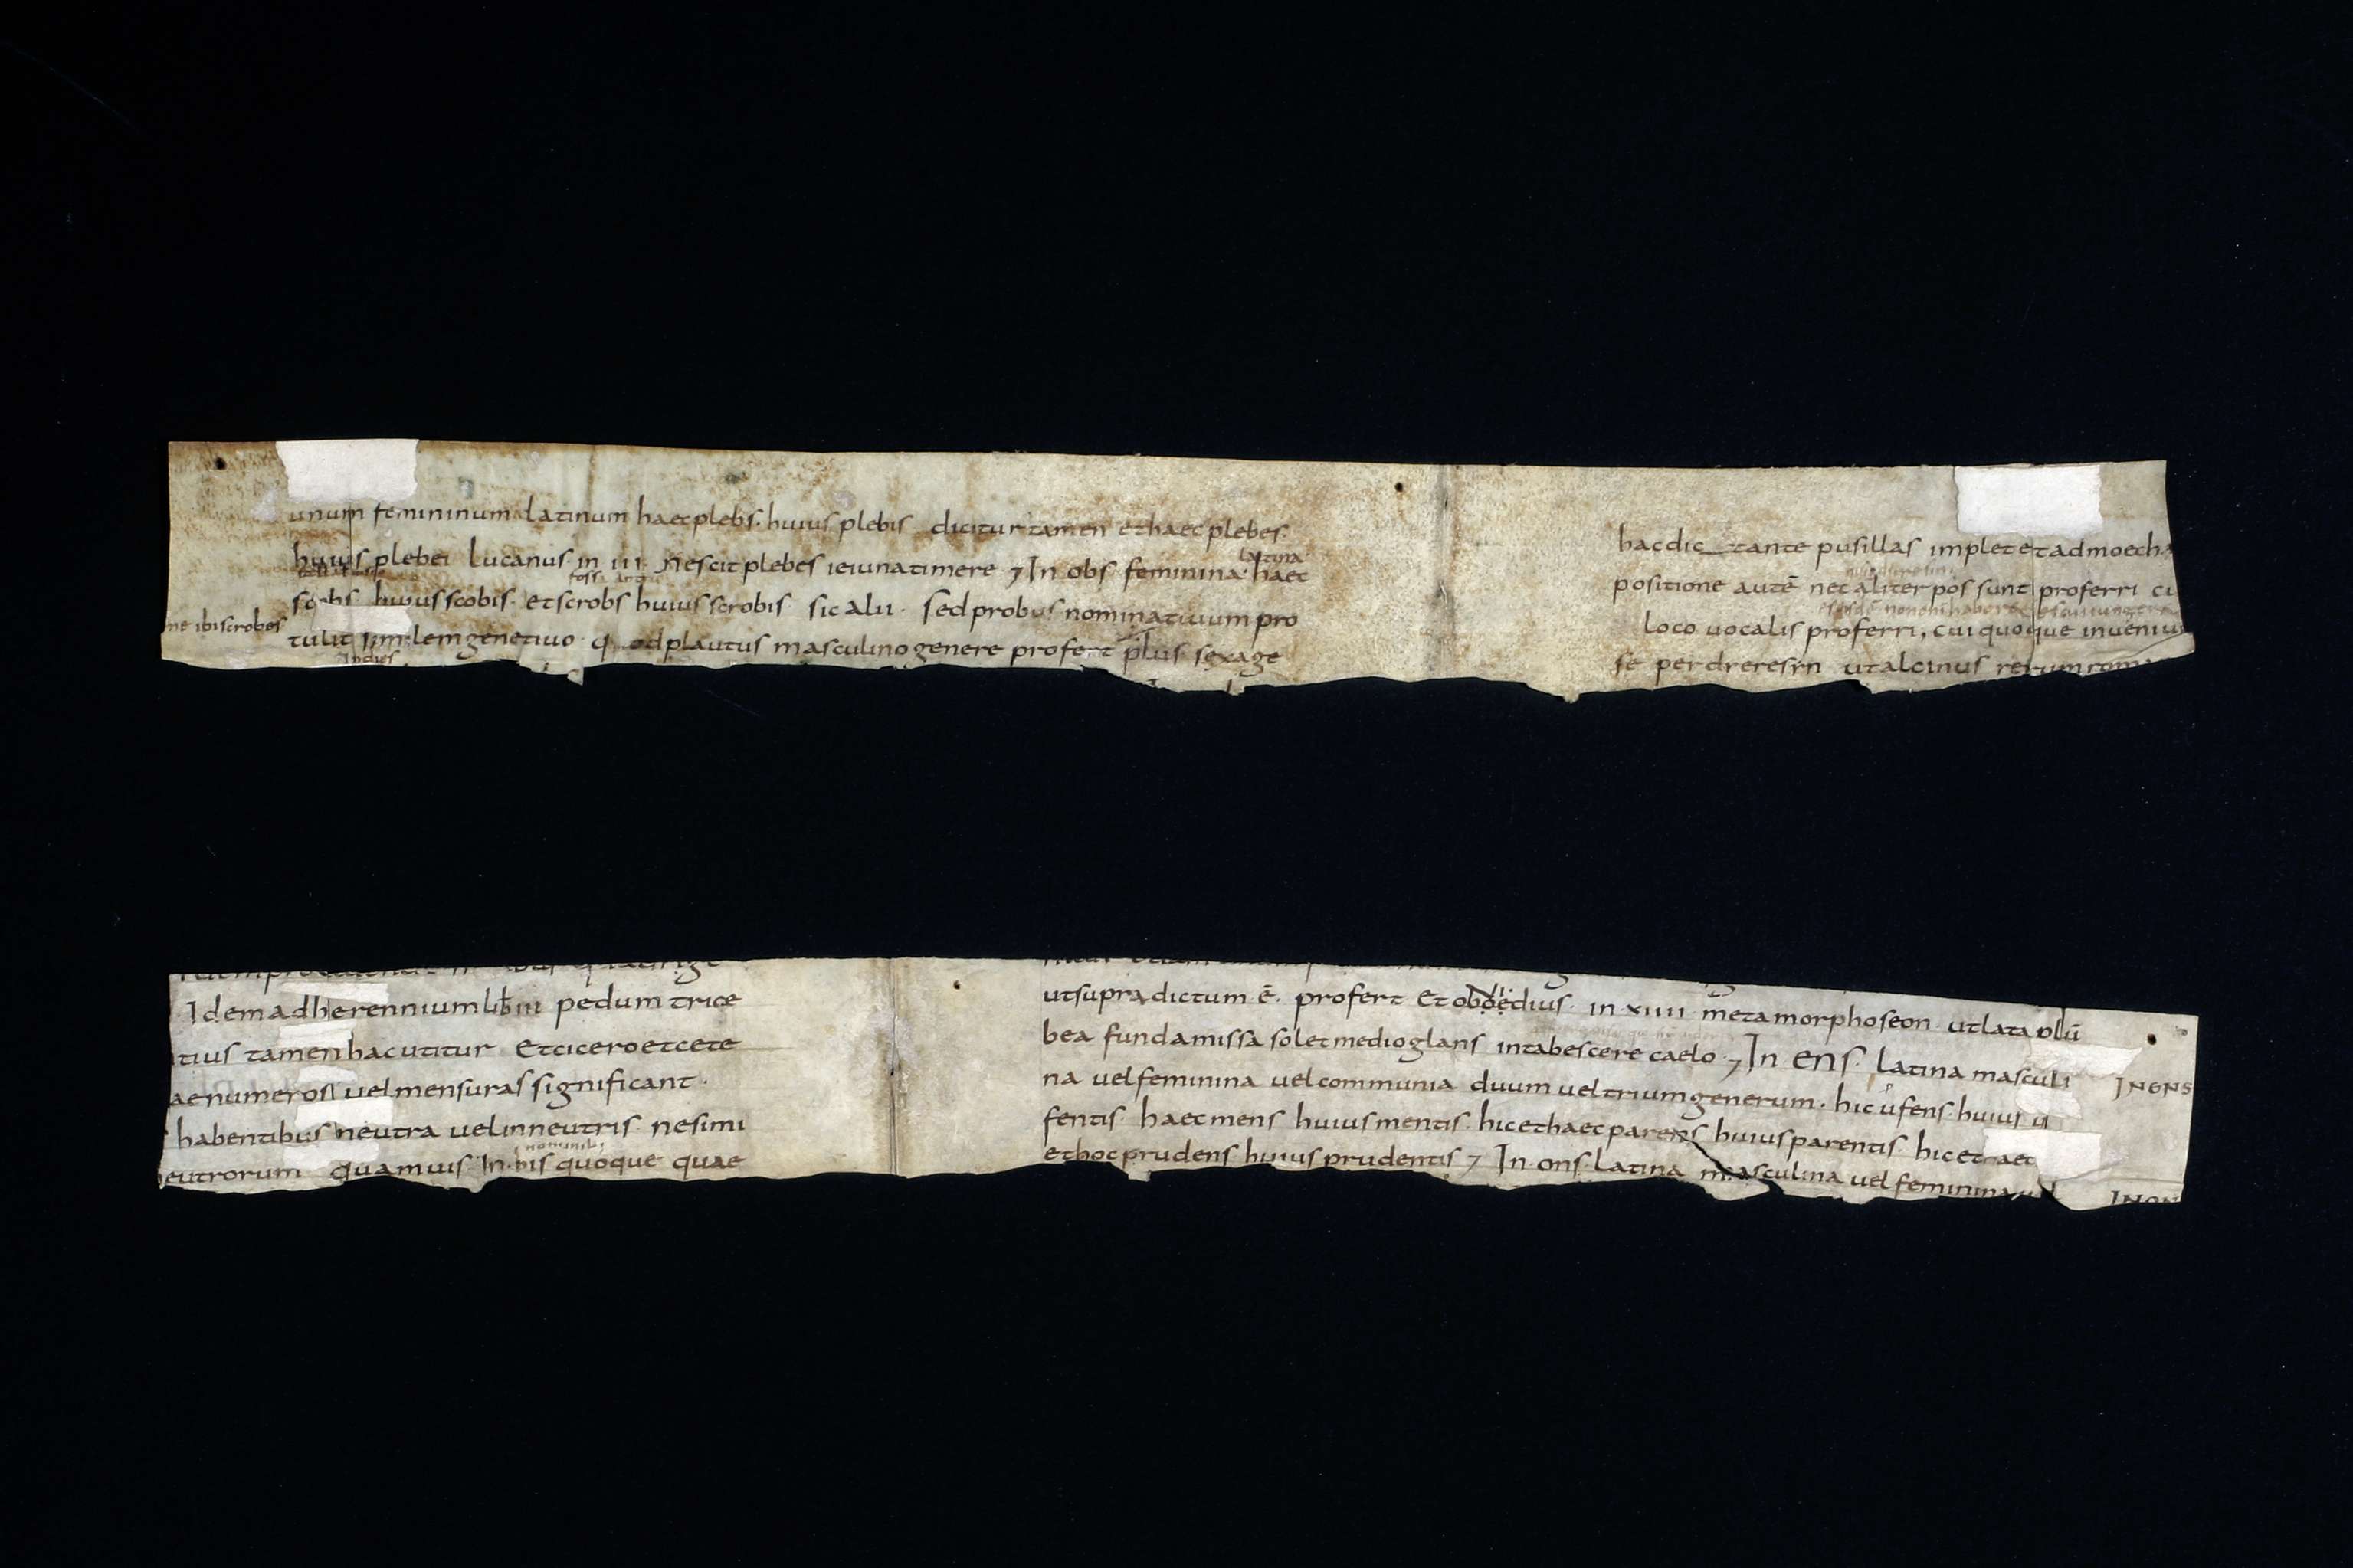 unum femininum latinum haec plebs. huius plebis dicitur tamen et haec plebes.
huius plebei lucanus in iii nescit plebes ieiuna timere 7 In obs feminina haec
latina
scobs huius scobis et scrobs huius scrobis sic alii. sed probus nominativum pro
ne ibi scrobes
tulit similem genetivo quod plautus masculino genere profert plus sexage
Indies
hac dictante pusillas implet et ad moecha
positione autē nec aliter pos sunt proferri
loco vocalis proferri, cui quoque
se perdreresrn ut alcinus
Idem ad herennium lib iii pedum trice
tius tamen hac utitur et cicero et cete
ae numeros vel mensuras significant.
habentibus neutra vel in neutris nesimi
nominib;
eutrorum quamvis. In his quoque quae
ut supra dictum ē. profert et oboedius. in xiiii metamorphoseon ut lata plū
bea funda missa solet medio glans intabescere caelo 7 In ens. latina masculi
INENS
na vel feminina vel communia duum vel trium generum. hic ufens. huius u
fentis haec mens huius mentis. hic et haec parens huius parentis hic et aec
et hoc prudens huius prudentis 7 In ons. latina masculina vel feminina
INON